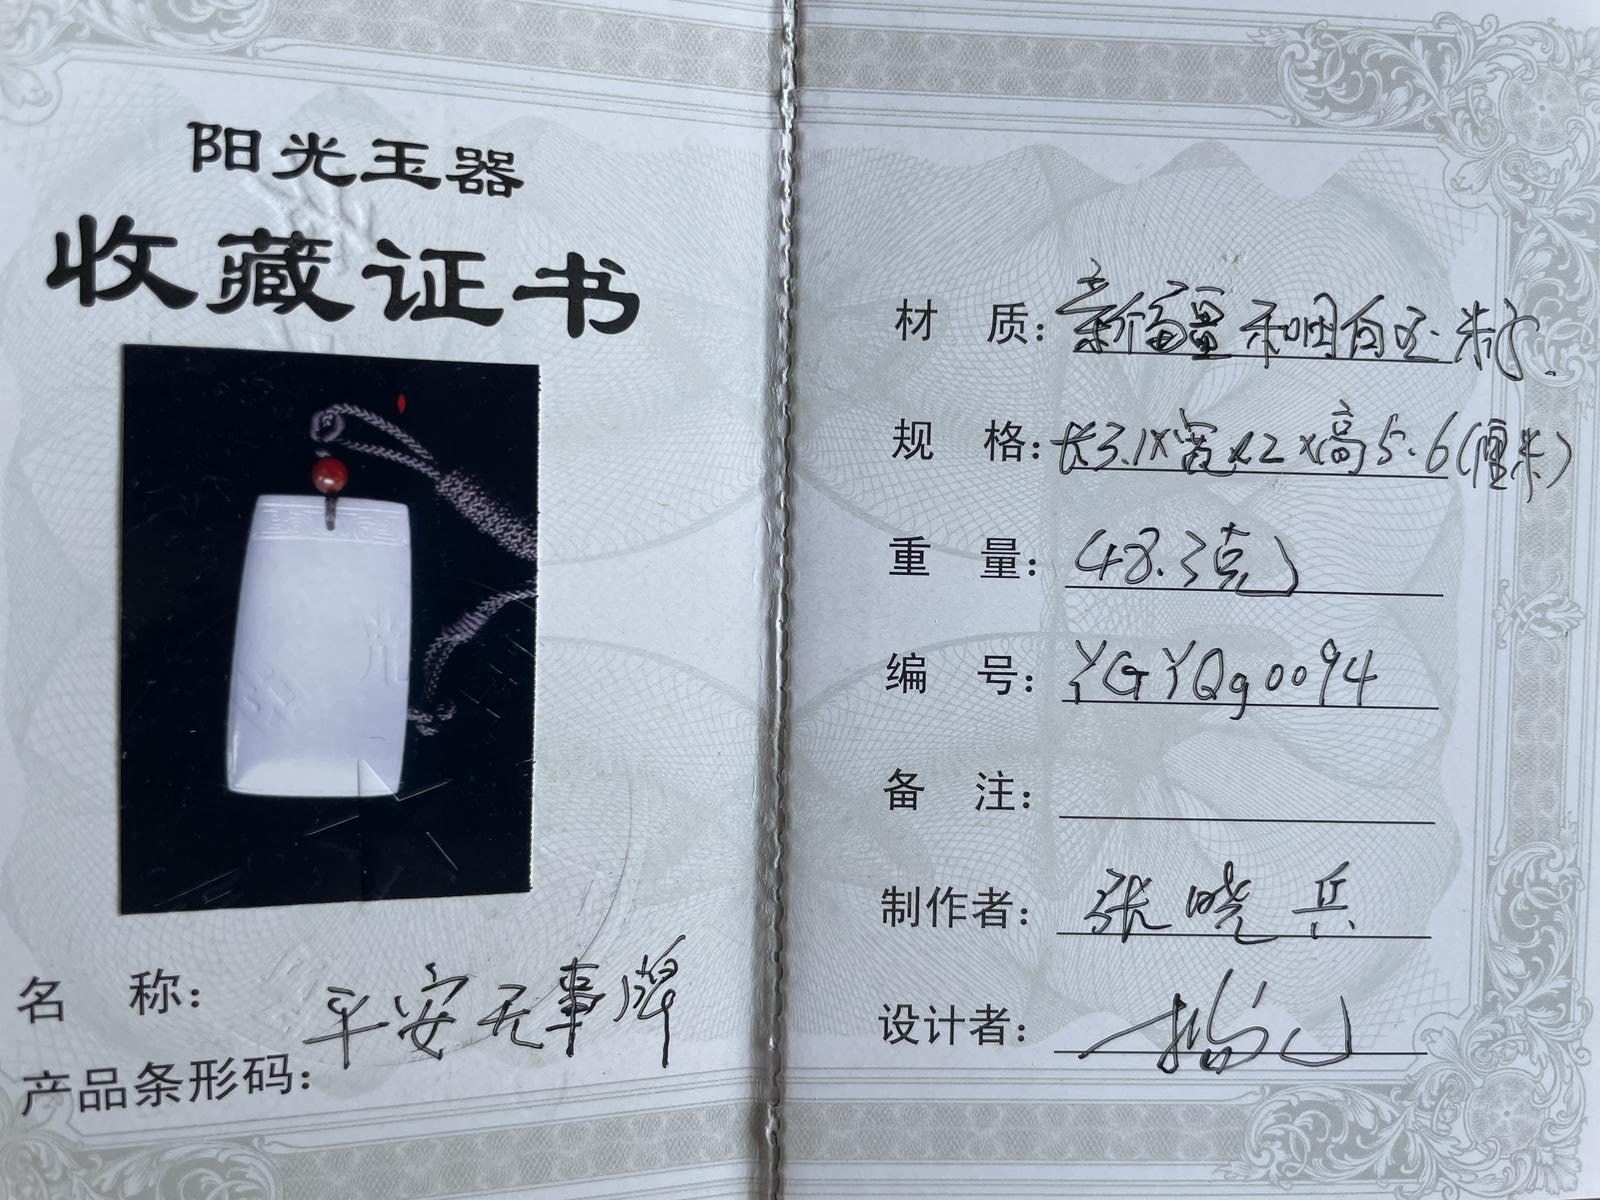 阳光玉器
收藏证书
名 称: 平安无事牌
产品条形码:
材 质: 新疆和田白玉籽
规 格: 长3.1×宽×2×高5.6(厘米)
重 量: 48.3克
编 号: YGYQg0094
备 注:
制作者: 张晓兵
设计者: